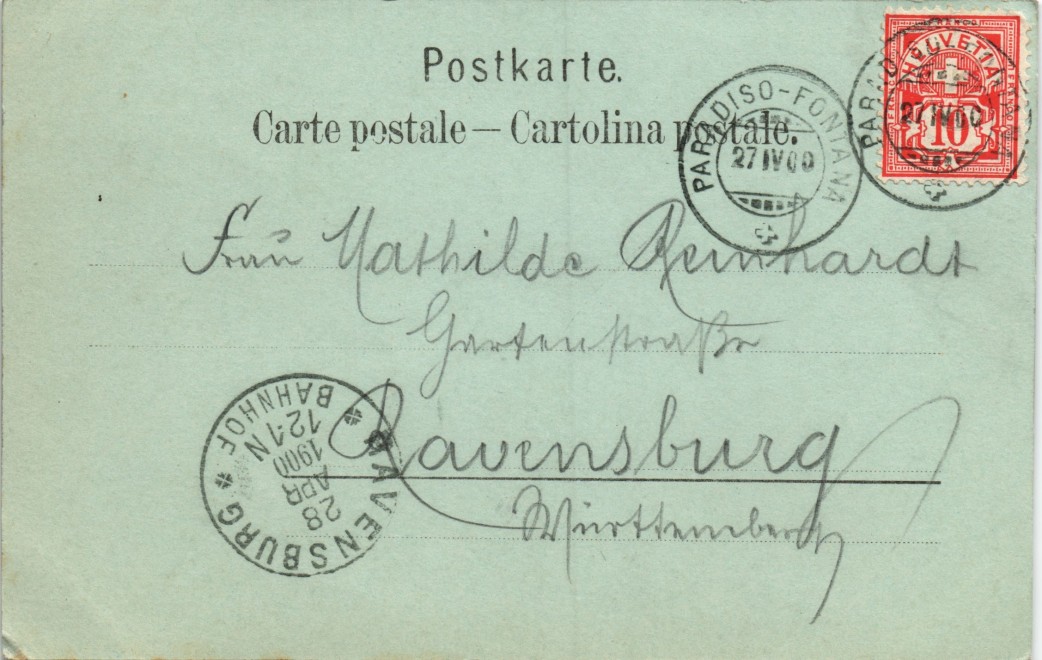 Postkarte.
Carte postale — Cartolina postale.
PARADISO-FONTANA
27 IV 00
HELVETIA
FRANCO
10
27 IV 00
Frau Mathilde Reinhardt
Gartenstraße
Ravensburg
Württemberg
RAVENSBURG
BAHNHOF
28
APR
1900
12-1 N